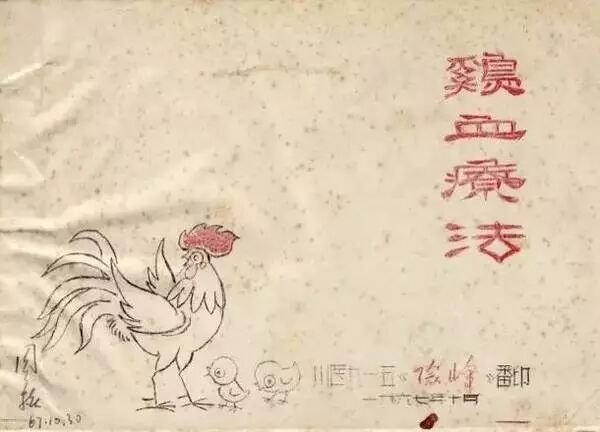 鷄血療法
川医九一五《险峰》翻印
一九六七年十月
67.10.30